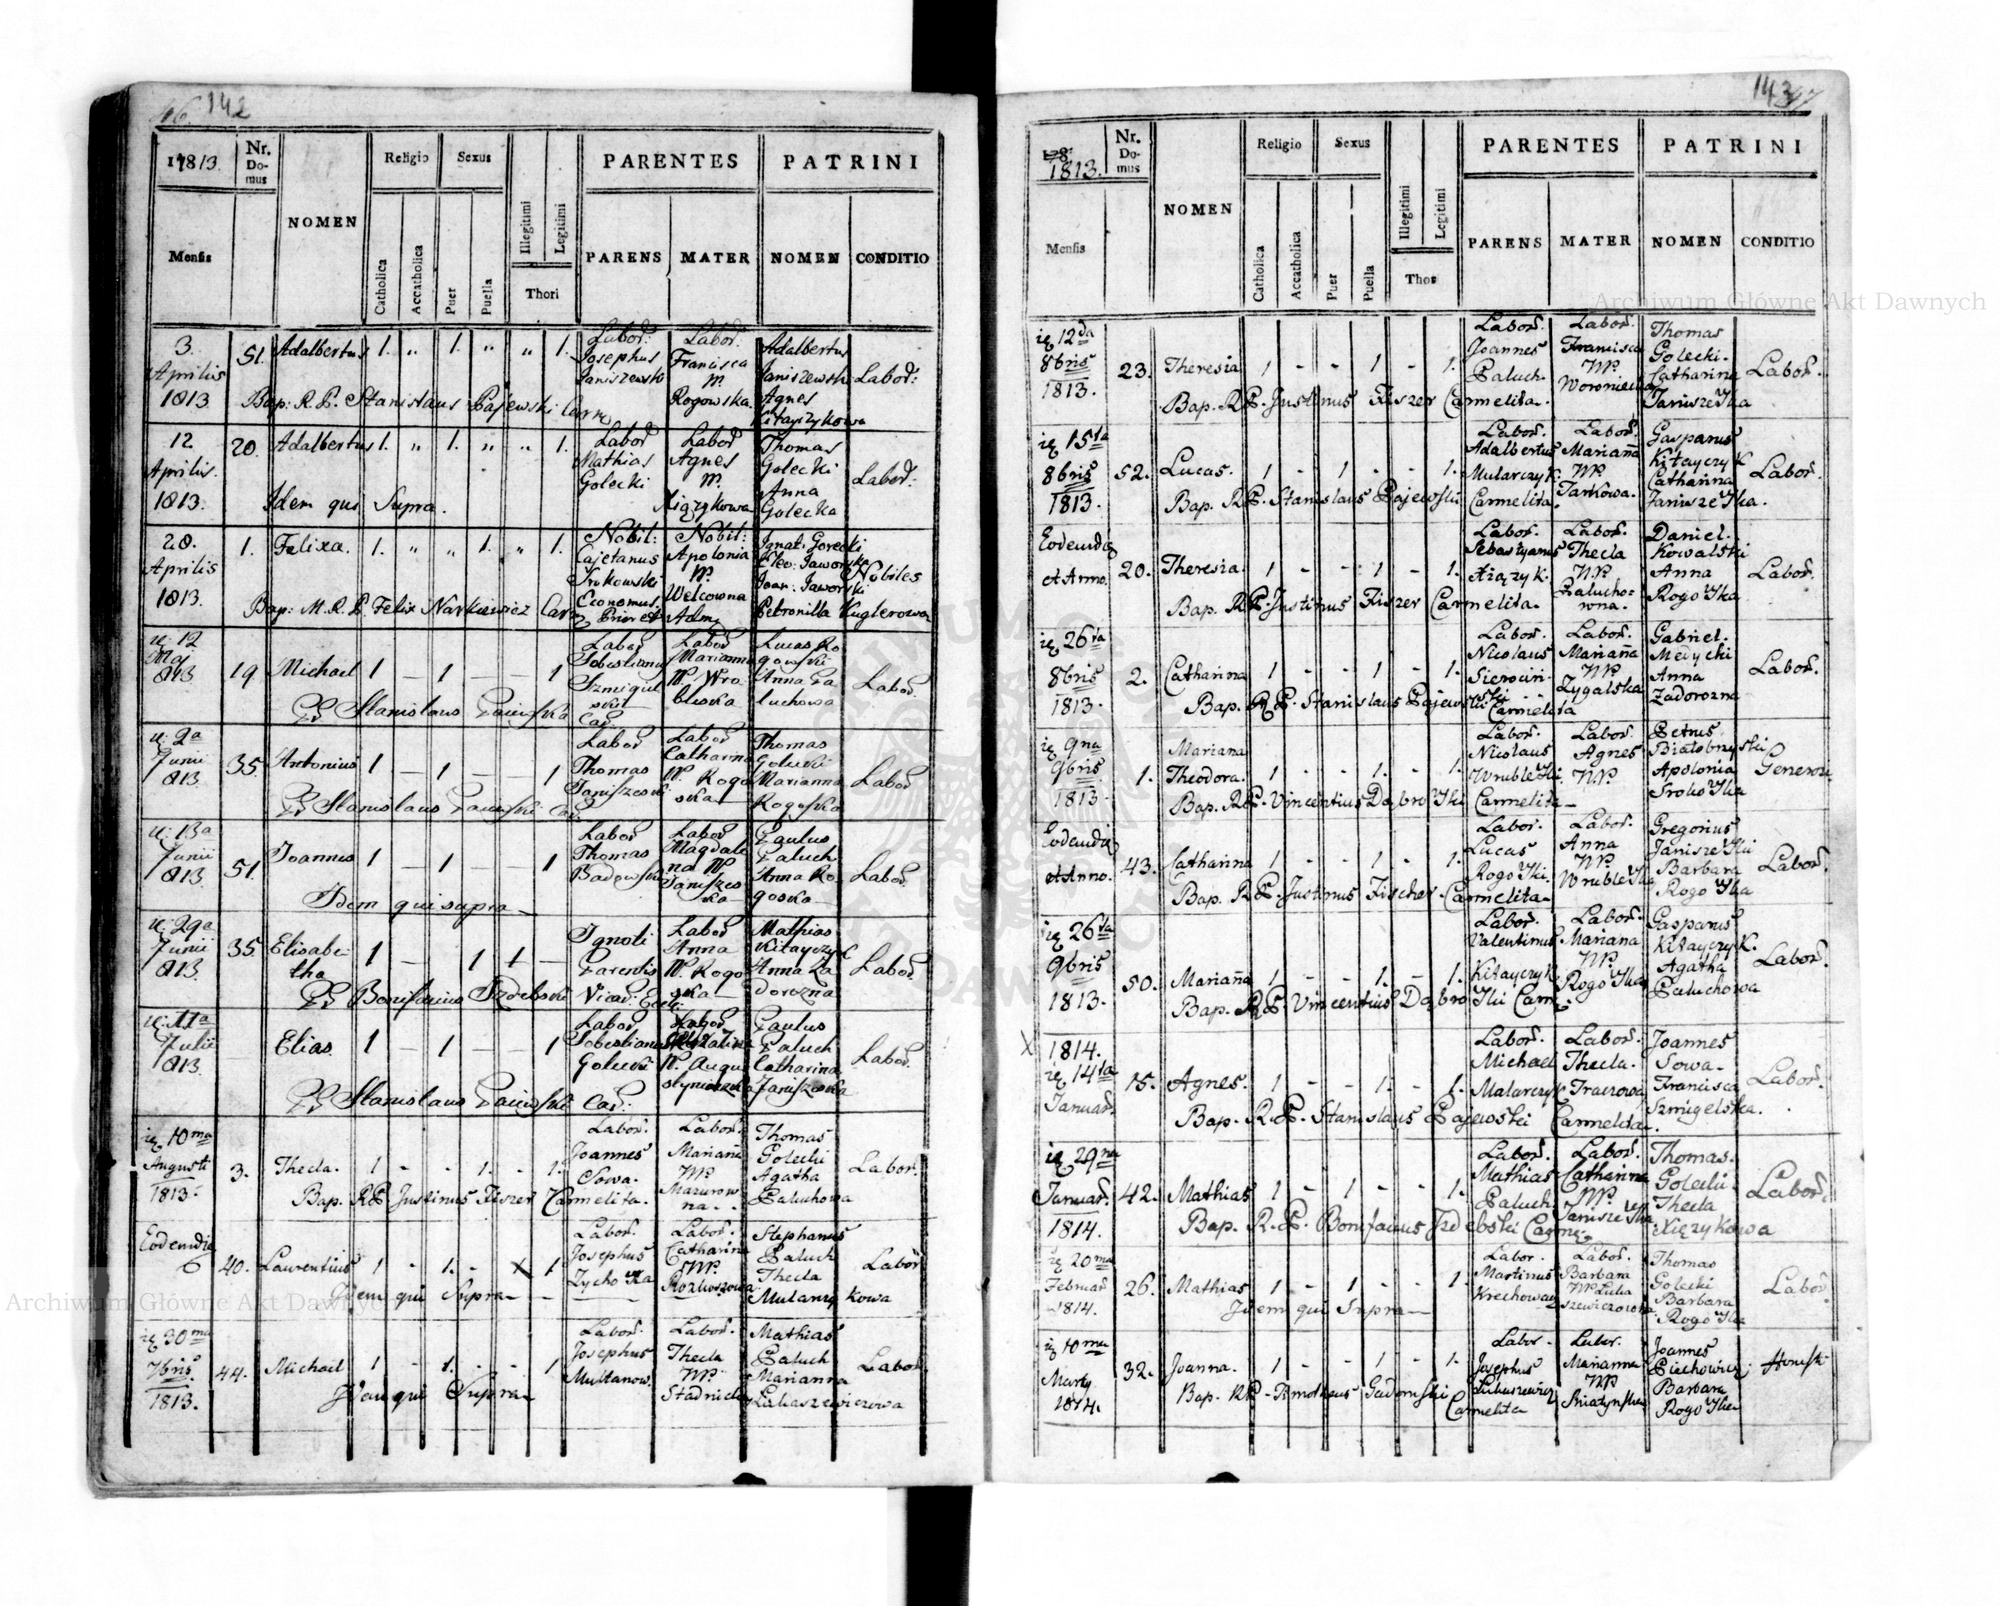 46. 142
1813.
Nr. Do-mus
NOMEN
Religio
Sexus
PARENTES
PATRINI
Mensis
Catholica
Accatholica
Puer
Puella
Illegitimi
Legitimi
Thori
PARENS
MATER
NOMEN
CONDITIO
3. Aprilis 1813
51. Adalbertus 1. „ 1. „ „ 1.
Labor: Josephus Janiszewski
Labor: Francisca N. Rogowska
Adalbertus Janiszewski Agnes Kitayczykowa
Labor:
Bap: R. P. Stanislaus Pajewski Carm
12 Aprilis. 1813.
20. Adalbertus 1. „ 1. „ „ 1.
Labor Mathias Golecki
Labor Agnes N. Xiązykowa
Thomas Golecki Anna Golecka
Labor:
Idem qui Supra.
28. Aprilis 1813.
1. Felixa. 1. „ „ 1. „ 1.
Nobil: Cajetanus Srokowski Economus.
Nobil: Apolonia N. Welcowna
Ignat: Gorecki Eleo: Jaworska Joan: Jaworski Petronilla Kuglerowa
Nobiles
Bap: M. R. P. Felix Narkiewicz Carm Prior et Adm
12 Maj 813
19. Michael 1 – 1 – – 1
Labor Sobestianus
Labor Marianna N. Wroblewska
Lucas Rogowski Anna Paluchowa
Labor.
PP Stanislaus Paiewski Car.
2a Junii 813
35. Antonius 1 – 1 – – 1
Labor Thomas Janiszewski
Labor Catharina N. Rogoska
Thomas Golecki Marianna Rogoska
Labor
PP Stanislaus Paiewski Car.
13a Junii 813
51. Joannes 1 – 1 – – 1
Labor Thomas Badowski
Labor Magdalena N. Janiszeska
Paulus Paluch Anna Rogoska
Labor.
Idem qui supra –
29a Junii 813
35. Elisabetha 1 – 1 1 –
Ignoti Parentis
Labor Anna N. Rogoska
Mathias Kitayczyk Anna Zadorozna
Labor
PP Bonifacius Izdebski Vicar: Eccle:
11a Julii 813.
Elias. 1 – 1 – – 1
Labor Sobestianus Golecki
Labor N. Augustyniczka
Paulus Paluch Catharina Janiszeska
Labor.
PP Stanislaus Paiewski Car:
10ma Augusti 1813.
3. Thecla. 1 - - 1. - 1.
Labor. Joannes Sowa.
Labor. Mariana NP. Mazurowna.
Thomas Golecki Agatha Paluchowa
Labor.
Bap. R P. Justinus Fiszer Carmelita.
Eodemdie
40. Laurentius 1 - 1. - X 1
Labor. Josephus Zychoska
Labor. Catharina NP.
Stephanus Paluch Thecla Mularzykowa
Labor
Idem qui Supra –
30ma 7bris. 1813.
44. Michael 1 - 1. - - 1
Labor. Josephus Multanow.
Labor. Thecla NP. Stadnicka
Mathias Paluch Marianna Lukaszewiczowa
Labor.
Idem qui Supra
143 47
1813.
Nr. Do-mus
NOMEN
Religio
Sexus
PARENTES
PATRINI
Mensis
Catholica
Accatholica
Puer
Puella
Illegitimi
Legitimi
Thor
PARENS
MATER
NOMEN
CONDITIO
12da 8bris 1813.
23. Theresia 1 - - 1 - 1.
Labor. Joannes Paluch.
Labor. Francisca NP. Woroniecka
Thomas Golecki. Catharina Janiszeska
Labor.
Bap. R P. Justinus Fiszer Carmelita.
15ta 8bris 1813.
52. Lucas. 1 - 1 - - 1.
Labor. Adalbertus Mularczyk.
Labor. Mariana NP. Jankowa.
Gasparus Kitayczyk Catharina Janiszeska.
Labor.
Bap. R P. Stanislaus Pajewski Carmelita.
Eodemdie et Anno.
20. Theresia. 1 - - 1 - 1.
Labor. Sebastyanus Xiązyk.
Labor. Thecla NP. Paluchowna.
Daniel. Kowalski Anna Rogoska
Labor.
Bap. R P. Justinus Fiszer Carmelita.
26ta 8bris 1813.
2. Catharina 1 - - 1 - 1.
Labor. Nicolaus
Labor. Mariana NP. Zygalska
Gabriel. Medycki Anna Zadorozna
Labor.
Bap. R P. Stanislaus Pajewski Carmelita
9na 9bris 1813
1. Mariana Theodora. 1 - - 1. - 1.
Labor. Nicolaus Wrubleski
Labor. Agnes NP.
Petrus Białobrzyski Apolonia Srokoska
Generosi
Bap. R P. Vincentius Dąbroski Carmelita –
Eodemdie et Anno.
43. Catharina 1 - - 1 - 1.
Labor. Lucas Rogoski.
Labor. Anna NP. Wrubleska
Gregorius Janiszeski Barbara Rogoska
Labor.
Bap. R P. Justinus Fischer Carmelita.
26ta 9bris 1813.
50. Mariana 1 - - 1. - 1.
Labor. Valentinus Kitayczyk
Labor. Mariana NP. Rogoska
Gasparus Kitayczyk. Agatha Paluchowa
Labor.
Bap. R P. Vincentius Dąbroski Carm
X 1814. 14ta Januar.
15. Agnes. 1 - - 1. - 1.
Labor. Michael Malarczyk
Labor. Thecla. Traczowa
Joannes Sowa. Francisca Szmigelska.
Labor.
Bap. R. P. Stanislaus Pajewski Carmelita.
29na Januar. 1814.
42. Mathias 1 - 1 - - 1.
Labor. Mathias Paluch.
Labor. Catharina NP. Janiszeska
Thomas. Golecki Thecla Xięzykowa
Labor.
Bap. R. P. Bonifacius Izdebski Carm.
20ma Februar 1814.
26. Mathias 1 - 1 - - 1.
Labor. Martinus Krechowicz
Labor. Barbara NP.
Thomas Golecki Barbara Rogoska
Labor.
Idem qui Supra –
10ma Marty 1814.
32. Joanna. 1 - - 1 - 1.
Labor. Josephus Lukaszewicz
Labor. Marianna NP. Sniatynska
Joannes Piechowicz Barbara Rogoska
Bap. RP. Timotheus Gadomski Carmelita
Archiwum Główne Akt Dawnych
Archiwum Główne Akt Dawnych